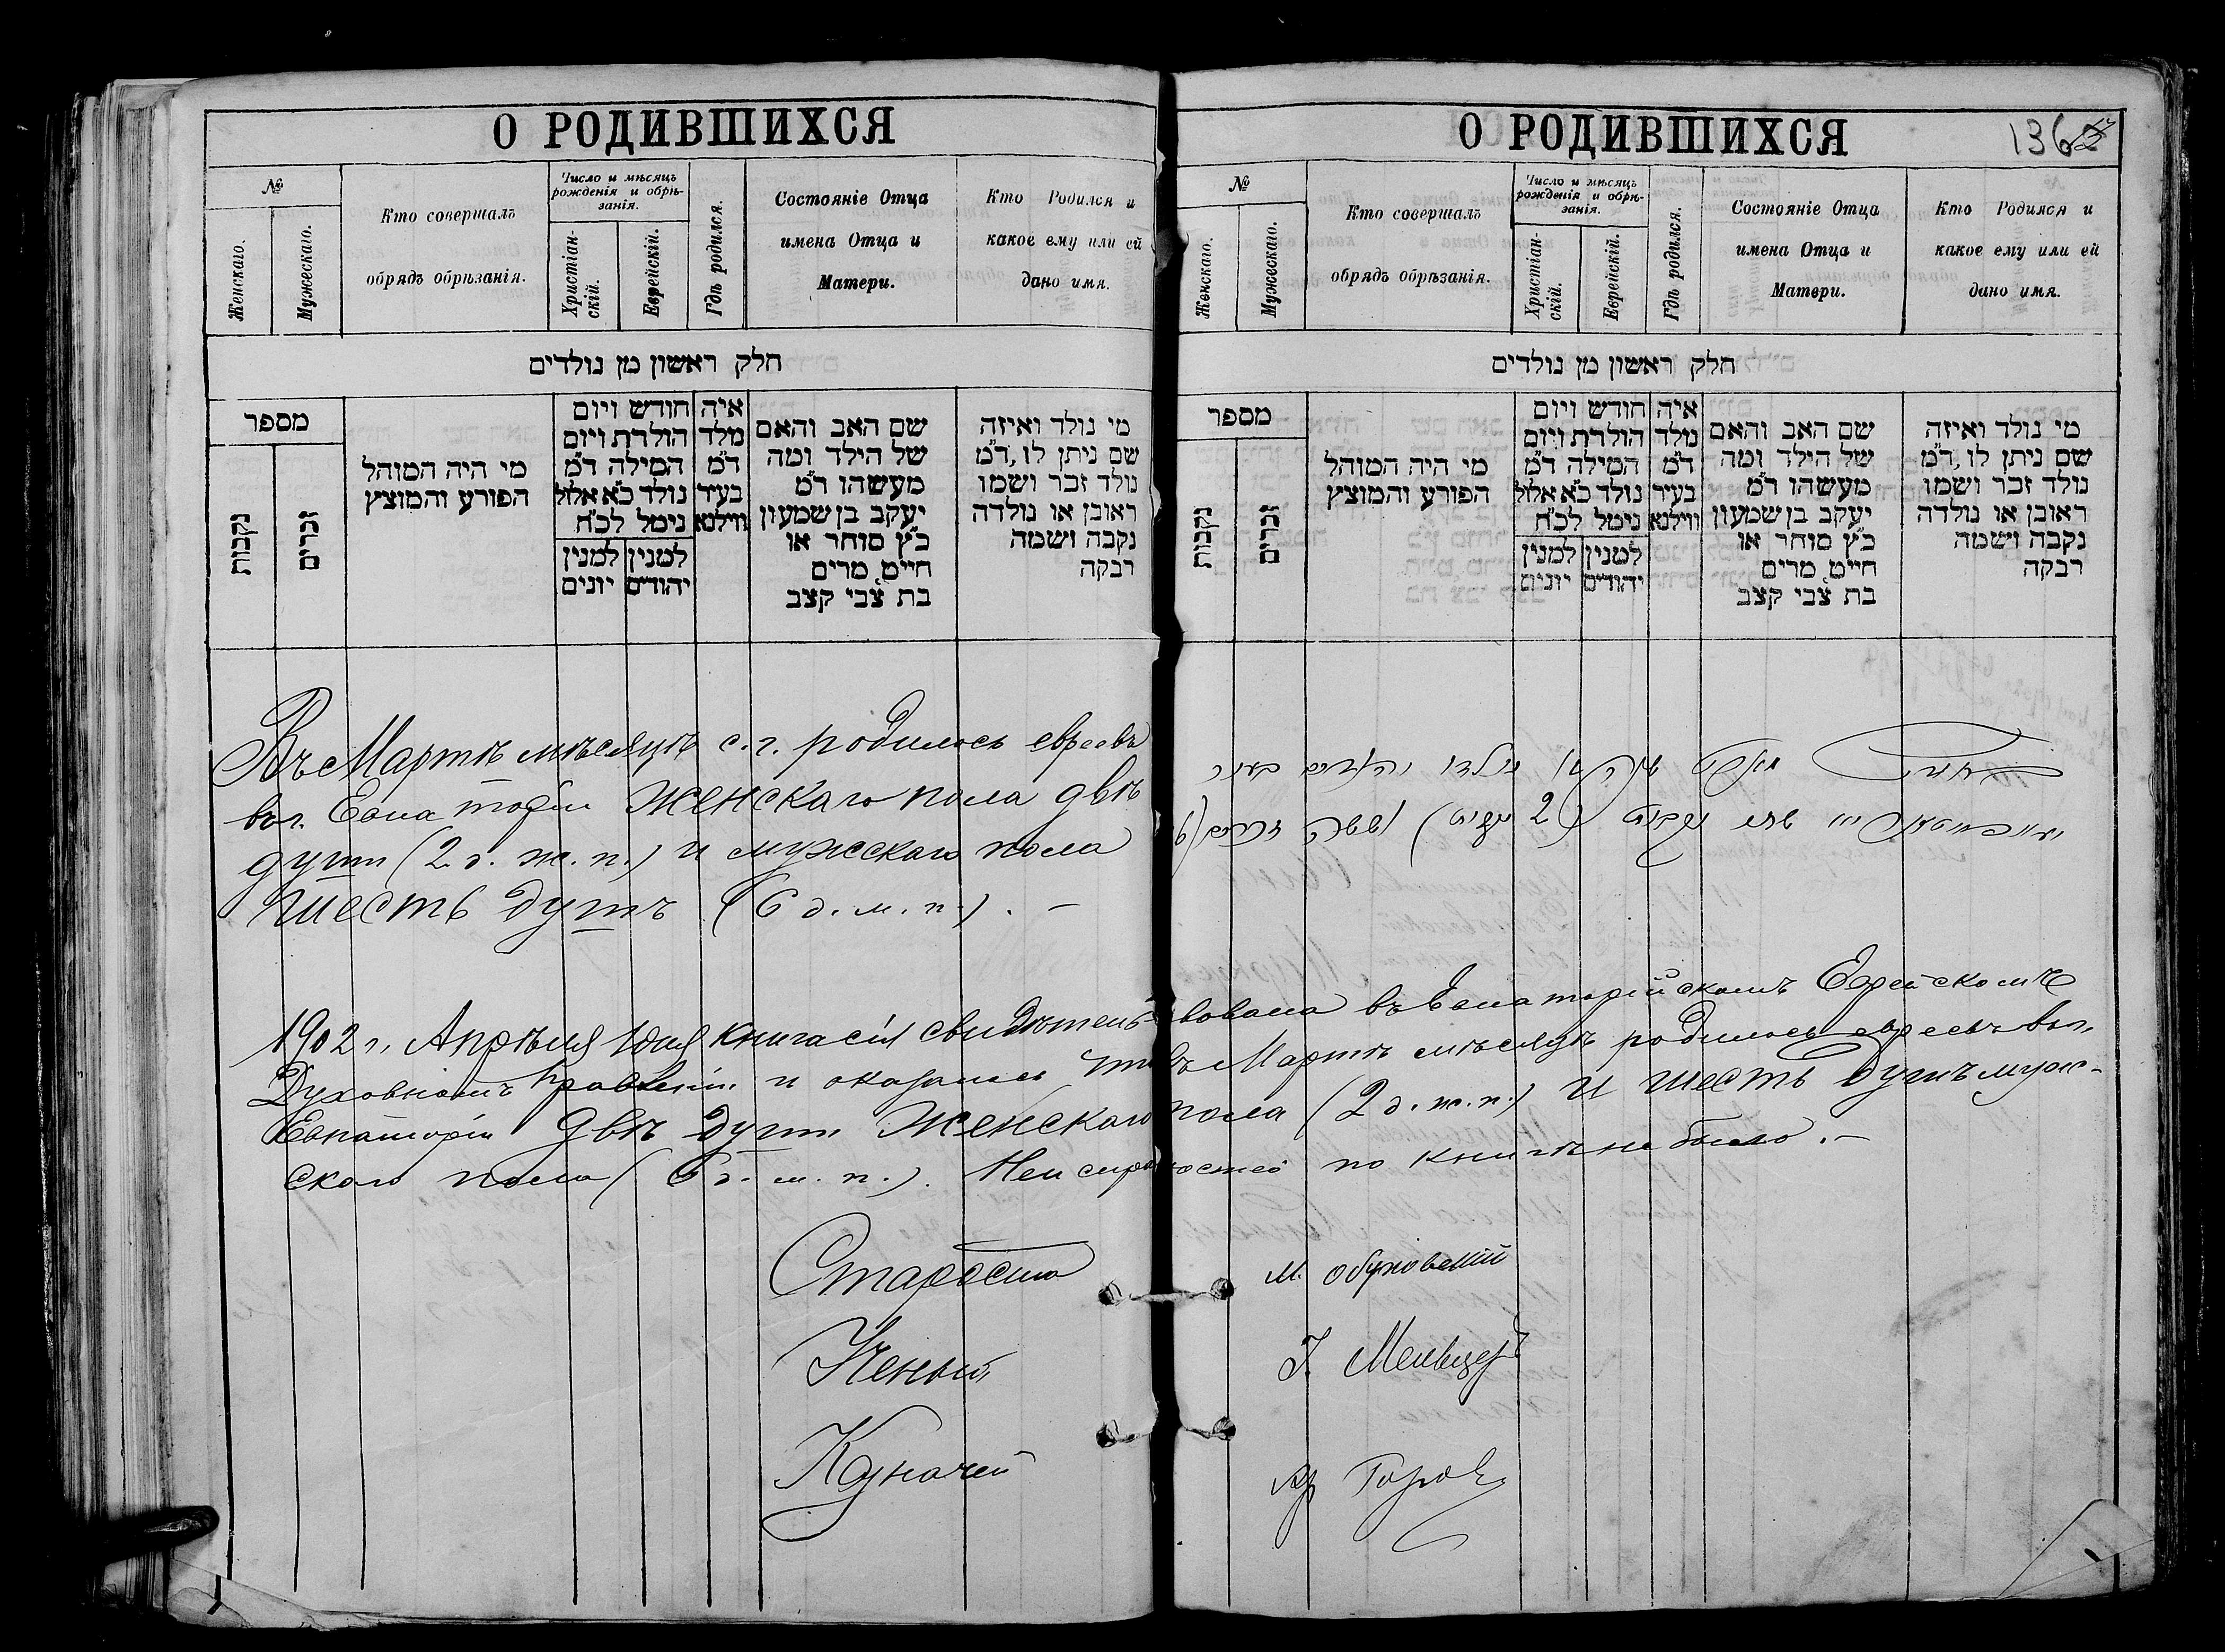 О РОДИВШИХСЯ
№
Женскаго.
Мужескаго.
Кто совершалъ
обрядъ обрѣзанія.
Число и мѣсяцъ
рожденія и обрѣ-
занія.
Христіан-
скій.
Еврейскій.
Гдѣ родился.
Состояніе Отца
имена Отца и
Матери.
Кто Родился и
какое ему или ей
дано имя.
חלק ראשון מן נולדים
מספר
נקבות
זכרים
מי היה המוהל
הפורע והמוצץ
חודש ויום
הולדת ויום
המילה ד"מ
נולד כ"א אלול
נימל לכ"ח
למנין יהודים
למנין יונים
איה
נולד
ד"מ
בעיר
ווילנא
שם האב והאם
של הילד ומה
מעשהו ד"מ
יעקב בן שמעון
כ"ץ סוחר או
חייט, מרים
בת צבי קצב
מי נולד ואיזה
שם ניתן לו, ד"מ
נולד זכר ושמו
ראובן או נולדה
נקבה ושמה
רבקה
Въ Мартѣ мѣсяцѣ с. г. родилось евреевъ
въ г. Евпаторіи женскаго пола двѣ
души (2 д. ж. п.) и мужскаго пола
шесть душъ (6 д. м. п.). —
О РОДИВШИХСЯ
136
№
Женскаго.
Мужескаго.
Кто совершалъ
обрядъ обрѣзанія.
Число и мѣсяцъ
рожденія и обрѣ-
занія.
Христіан-
скій.
Еврейскій.
Гдѣ родился.
Состояніе Отца
имена Отца и
Матери.
Кто Родился и
какое ему или ей
дано имя.
חלק ראשון מן נולדים
מספר
נקבות
זכרים
מי היה המוהל
הפורע והמוצץ
חודש ויום
הולדת ויום
המילה ד"מ
נולד כ"א אלול
נימל לכ"ח
למנין יהודים
למנין יונים
איה
נולד
ד"מ
בעיר
ווילנא
שם האב והאם
של הילד ומה
מעשהו ד"מ
יעקב בן שמעון
כ"ץ סוחר או
חייט, מרים
בת צבי קצב
מי נולד ואיזה
שם ניתן לו, ד"מ
נולד זכר ושמו
ראובן או נולדה
נקבה ושמה
רבקה
1902 г., Апрѣля 1 дня книга сія свидѣтельствована въ Евпаторійскомъ Еврейскомъ
Духовномъ Правленіи и оказалось что въ Мартѣ мѣсяцѣ родилось евреевъ въ г.
Евпаторіи двѣ души женскаго пола (2 д. ж. п.) и шесть душъ муж-
скаго пола (6 д. м. п.). Неисправностей по книгѣ не было. —
Староста М. Обуховскій
Ученый
Казначей